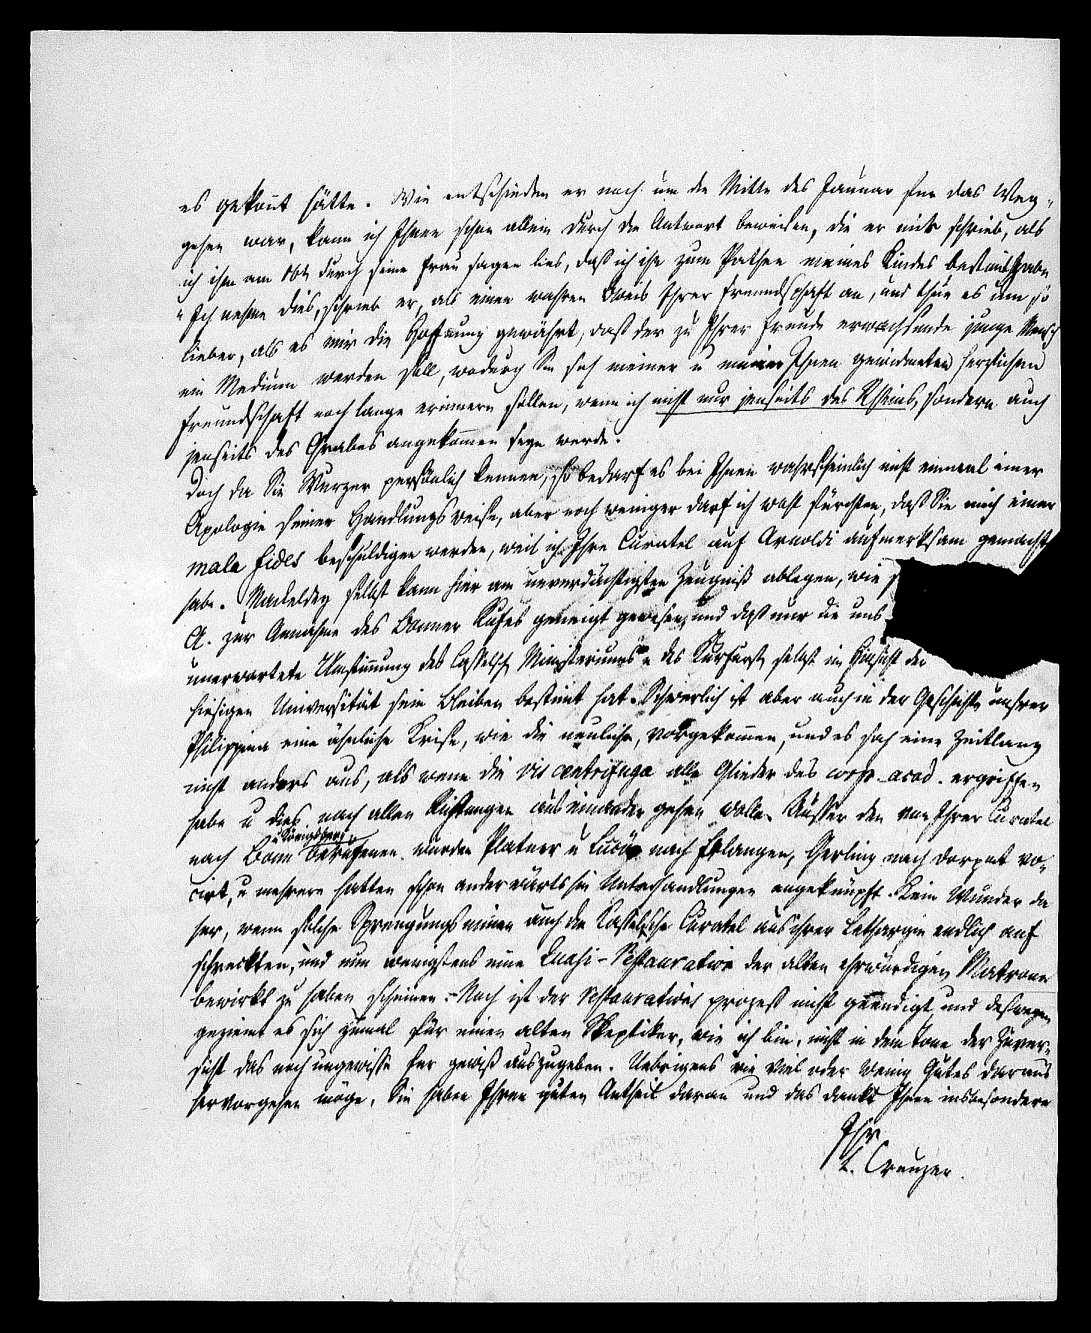 es gekont hätte. Wie entschieden er noch um die Mitte des Januar für das Weg-
gehen war, kann ich Ihnen schon allein durch die Antwort beweisen, die er mir schrieb, als
ich ihm am durch seine Frau sagen lies, daß ich ihn zum Pathen meines Kindes bestimt habe
"Ich nehme dies, schrieb er, als einen wahren Beweis Ihrer Freundschaft an, und thue es um so
lieber, als es mir die Hoffnung gewährt, daß der zu Ihrer Freude erwachsende junge Mensch
ein Medium werden soll, wodurch Sie sich meiner u meiner Ihnen gewidmeten herzlichen
Freundschaft noch lange erinnern sollen, wenn ich nicht nur jenseits des Rheins, sondern auch
jenseits des Grabes angekommen seyn werde.
Doch da Sie Wurzer persönlich kennen, so bedarf es bei Ihnen wahrscheinlich nicht einmal einer
Apologie seiner Handlungsweise, aber noch weniger darf ich wohl fürchten, daß Sie mich einer
mala fides beschuldigen werden, weil ich Ihre Curatel auf Arnoldi aufmerksam gemacht
habe. Mackeldey selbst kann hier am unverdächtigsten Zeugniß ablegen, wie
A. zur Annahme des Bonner Rufes geneigt gewesen, und daß nur die uns
unerwartete Umstimmung des Casselsch. Ministeriums u des Kurfürst. selbst in Hinsicht der
hiesigen Universität sein Bleiben bestimt hat. Schwerlich ist aber auch in der Geschichte unsrer
Philippina eine ähnliche Krise, wie die neuliche, vorgekommen, und es sah eine Zeitlang
nicht anders aus, als wenn die vis centrifuga alle Glieder des corp. acad. ergriffen
habe u dies nach allen Richtungen auseinander gehen wolle. Ausser den von Ihrer Curatel
nach Bonn u Königsberg berufenen wurden Platner u Lucä nach Erlangen, Gerling nach Dorpat vo-
cirt, u mehrere hatten schon anderwärtshin Unterhandlungen angeknüpft. Kein Wunder da
her, wenn solche Sprengungsminen auch die Casselsche Curatel aus ihrer Lethargie endlich auf
schreckten, und nun wenigstens eine Quasi-Restauration der alten ehrwürdigen Matrone
bewirkt zu haben scheinen. - Noch ist der Restaurations prozeß nicht geendigt, und deswegen
geziemt es sich zumal für einen alten Skeptiker, wie ich bin, nicht in dem Tone der Zuver-
sicht das noch ungewisse für gewiß auszugeben. Uebrigens wie viel oder wenig Gutes daraus
hervorgehen möge, Sie haben Ihren guten Antheil daran und das dankt Ihnen insbesondere
Ihr
L. Creuzer.